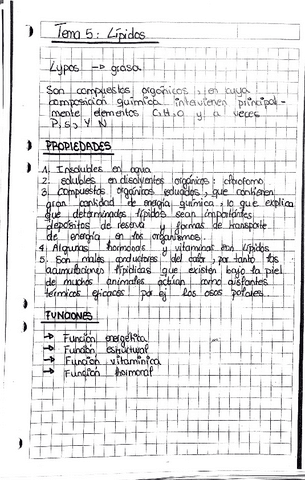 Tema 5: Lípidos
Lypos → grasa
Son compuestos orgánicos, en cuya
composición química intervienen principal-
mente elementos C, H, O y a veces
P, S, y N
PROPIEDADES
1. Insolubles en agua
2. solubles en disolventes orgánicos: cloroformo
3. Compuestos orgánicos reducidos, que contienen
gran cantidad de energía química, lo que explica
que determinados lípidos sean importantes
depósitos de reserva y formas de transporte
de energía en los organismos.
4. Algunas hormonas y vitaminas son lípidos
5. Son malos conductores del calor, por tanto las
acumulaciones lipídicas que existen bajo la piel
de muchos animales actúan como aislantes
térmicos eficaces por ej los osos polares.
FUNCIONES
→ Función energética
→ Función estructural
→ Función vitamínica
→ Función hormonal